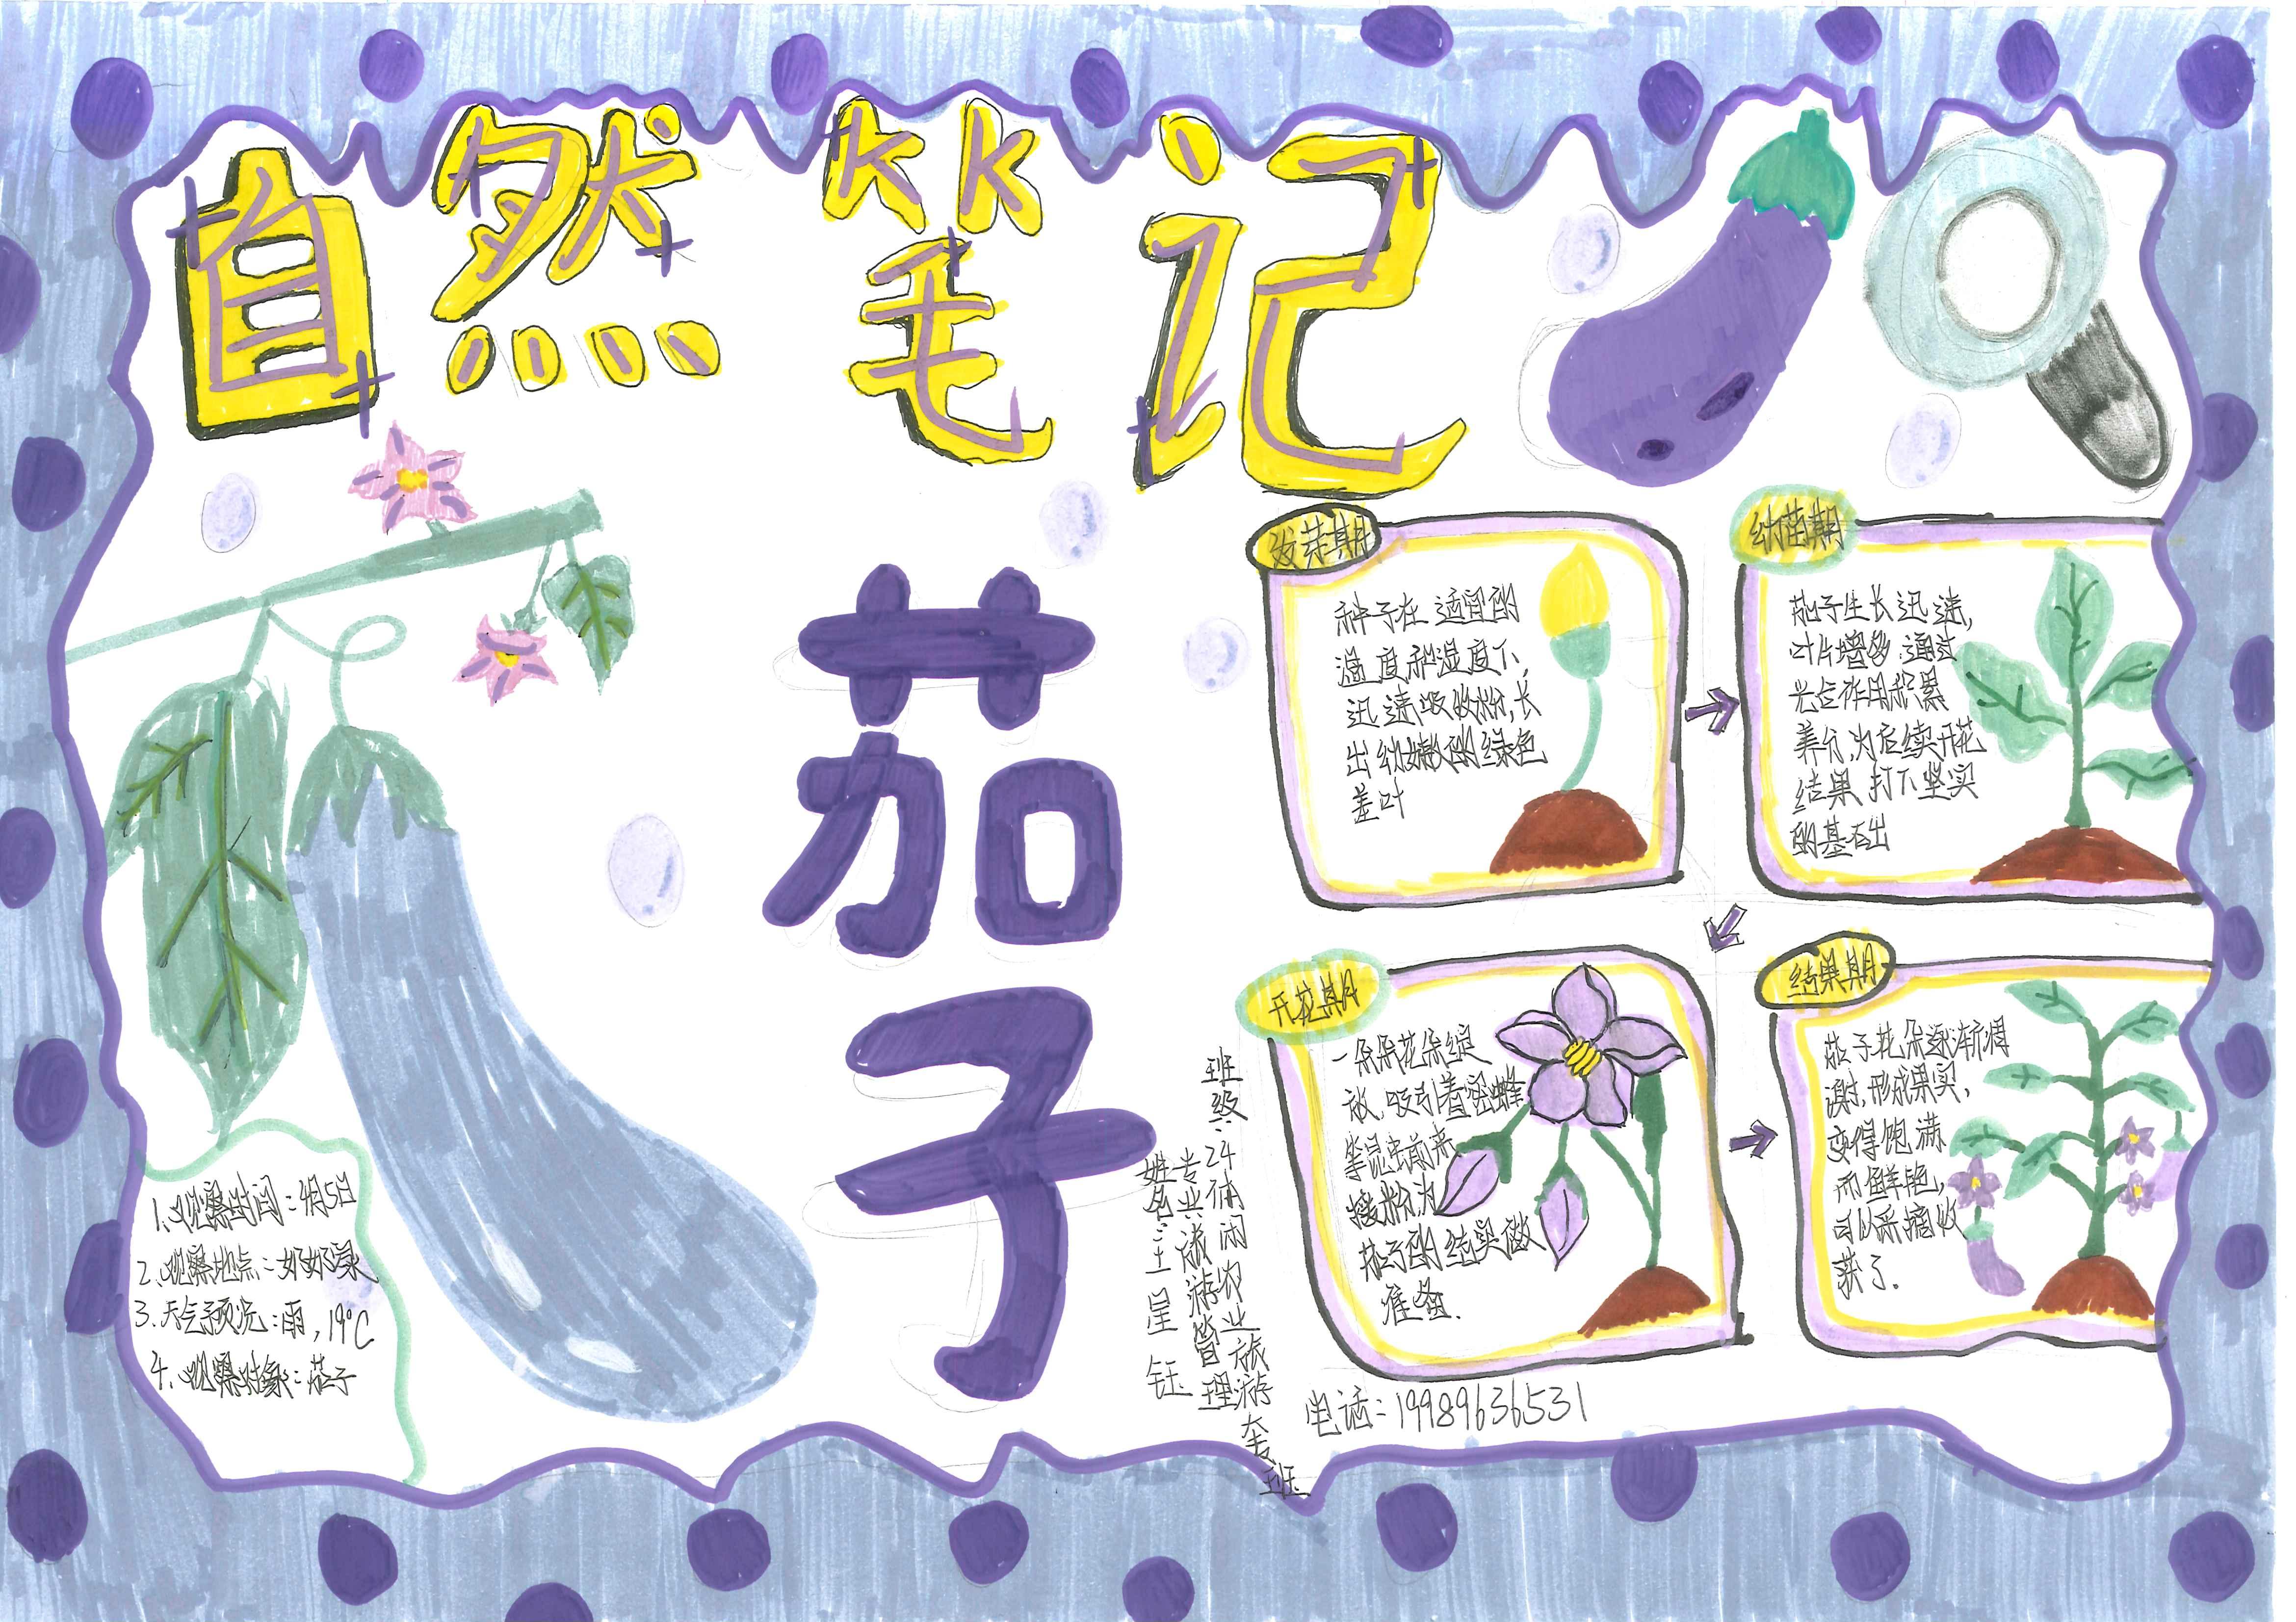 自然笔记
茄子
发芽期
种子在适宜的
温度和湿度下,
迅速吸收水份,长
出幼嫩的绿色
差叶
幼苗期
茄子生长迅速,
叶片增多.通过
光合作用积累
养分,为后续开花
结果打下坚实
的基石出
开花期
一朵朵花朵绽
放,吸引着蜜蜂
等昆虫前来
授粉,为
茄子的结实做
准备.
结果期
茄子花朵逐渐凋
谢,形成果实,
变得饱满
而鲜艳,
可以采摘收
获了.
1.观察时间:4月5日
2.观察地点:奶奶家
3.天气预况:雨,19℃
4.观察对象:茄子
班级:24休闲农业旅游
专业:旅游管理
电话:19989636531